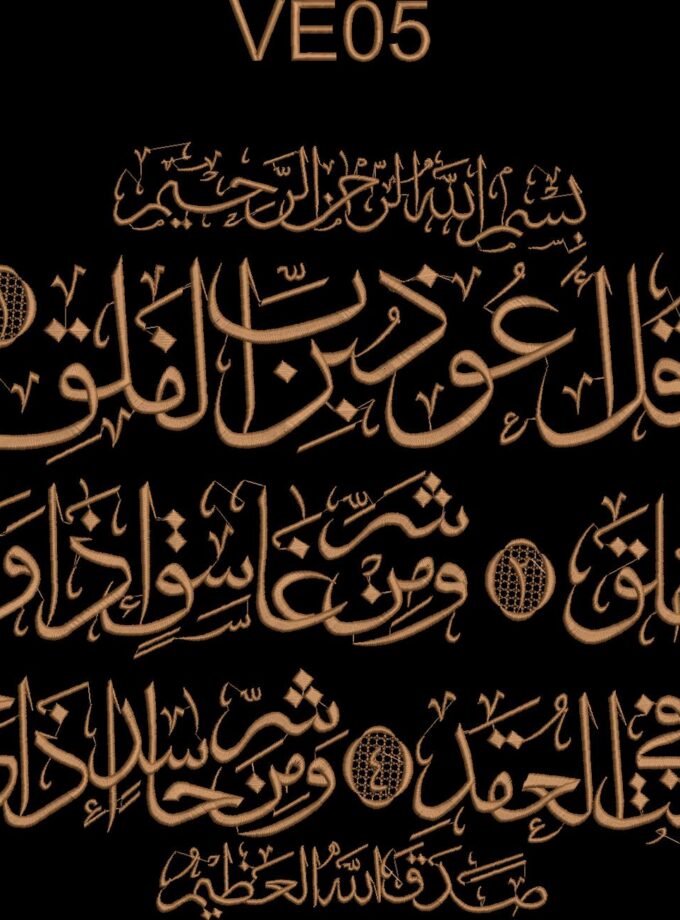 VE05
بِسْمِ اللَّهِ الرَّحْمٰنِ الرَّحِيمِ
قُلْ أَعُوذُ بِرَبِّ الْفَلَقِ ١
٢ وَمِن شَرِّ غَاسِقٍ إِذَا
فِي الْعُقَدِ ٤ وَمِن شَرِّ حَاسِدٍ إِذَا
صَدَقَ اللَّهُ الْعَظِيمُ